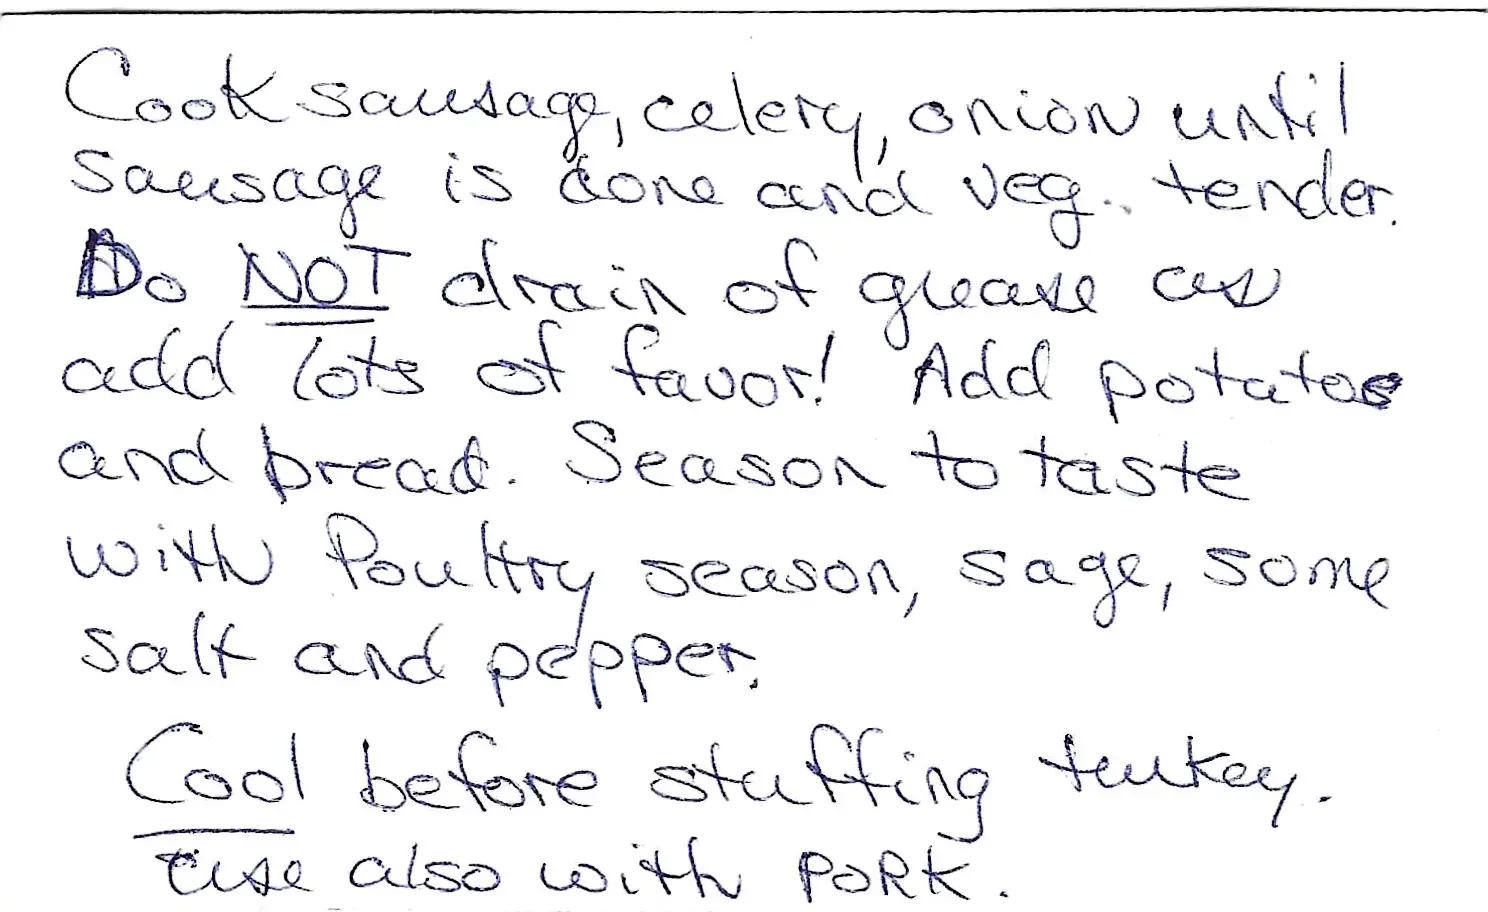 Cook sausage, celery, onion until
sausage is done and veg.. tender.
Do NOT drain of grease as
add lots of favor! Add potatoe
and bread. Season to taste
with Poultry season, sage, some
salt and pepper.
Cool before stuffing turkey.
use also with PORK.